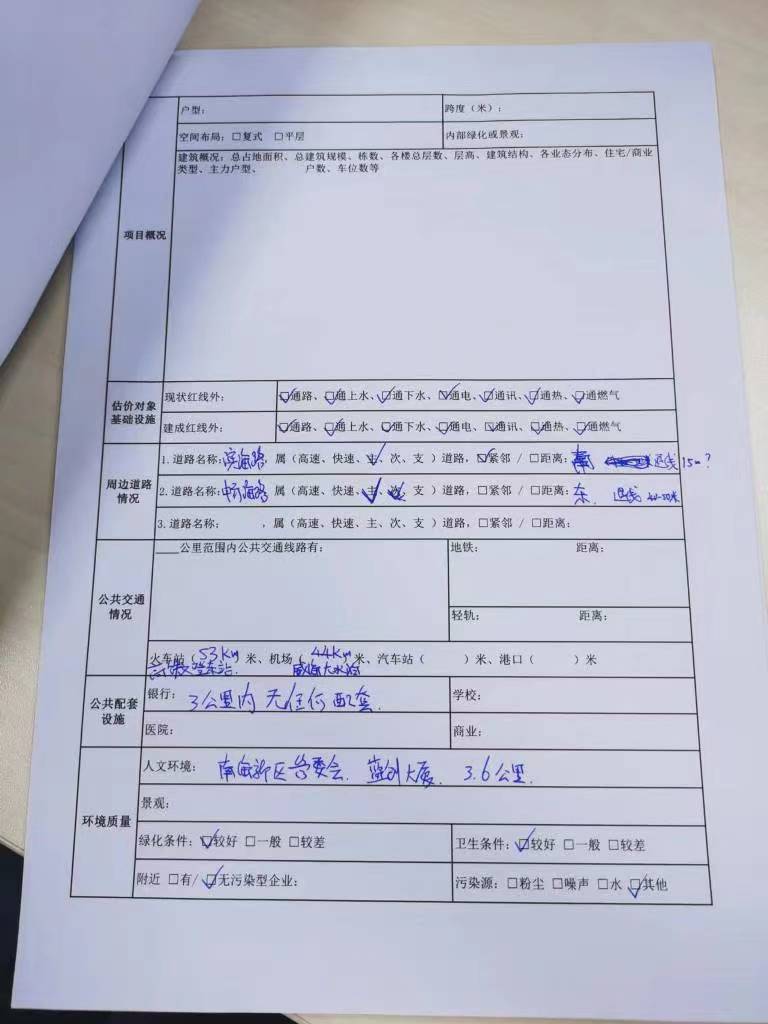 户型： 跨度（米）：
空间布局：□复式 □平层 内部绿化或景观：
项目概况
建筑概况：总占地面积、总建筑规模、栋数、各楼总层数、层高、建筑结构、各业态分布、住宅/商业
类型、主力户型、 户数、车位数等
估价对象
基础设施
现状红线外： ☑通路、☑通上水、☑通下水、☑通电、☑通讯、☑通热、☑通燃气
建成红线外： ☑通路、☑通上水、☑通下水、☑通电、☑通讯、☑通热、☑通燃气
周边道路
情况
1.道路名称：滨海路，属（高速、快速、主、次、支）道路，☑紧邻 / □距离：南 退线15m？
2.道路名称： 海路 属（高速、快速、主、次、支）道路，□紧邻 / □距离：东. 退线
3.道路名称： ，属（高速、快速、主、次、支）道路，□紧邻 / □距离：
公共交通
情况
____公里范围内公共交通线路有： 地铁： 距离：
轻轨： 距离：
火车站（53Km）米、机场（44Km）米、汽车站（ ）米、港口（ ）米
威海大水泊
公共配套
设施
银行：3公里内 无任何配套. 学校：
医院： 商业：
环境质量
人文环境：南海新区管委会. 蓝创大厦. 3.6公里.
景观：
绿化条件：☑较好 □一般 □较差 卫生条件：☑较好 □一般 □较差
附近 □有/☑无污染型企业： 污染源：□粉尘 □噪声 □水 ☑其他